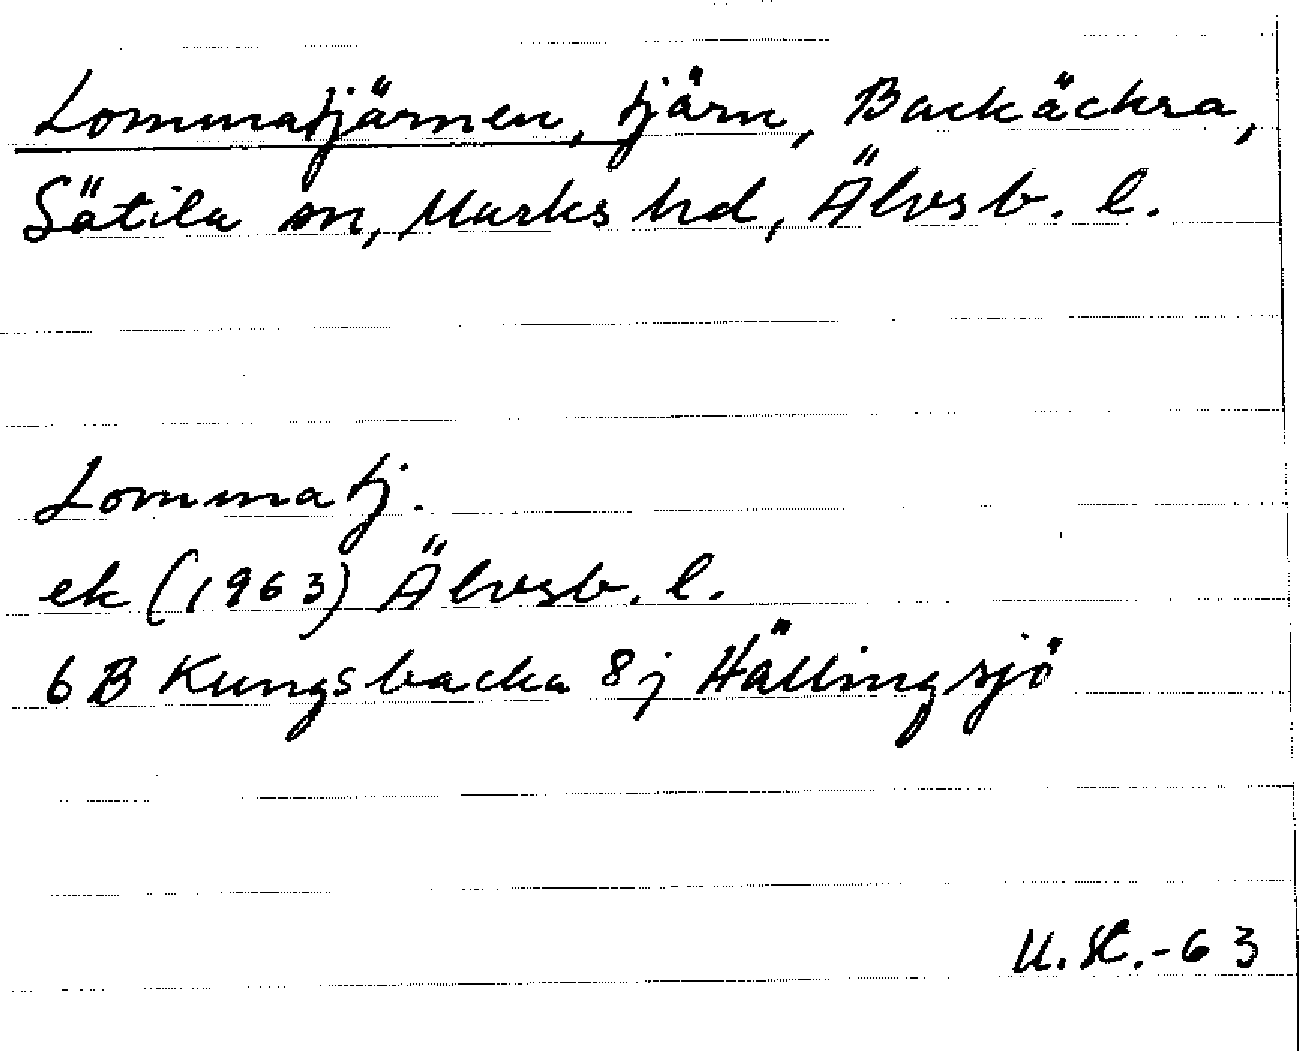 Lommatjärnen, tjärn, Backäckra,
Sätila sn, Marks hd, Älvsb. l.
Lommatj.
ek (1963) Älvsb. l.
6 B Kungsbacka 8 j Hällingsjö
U.H.-63